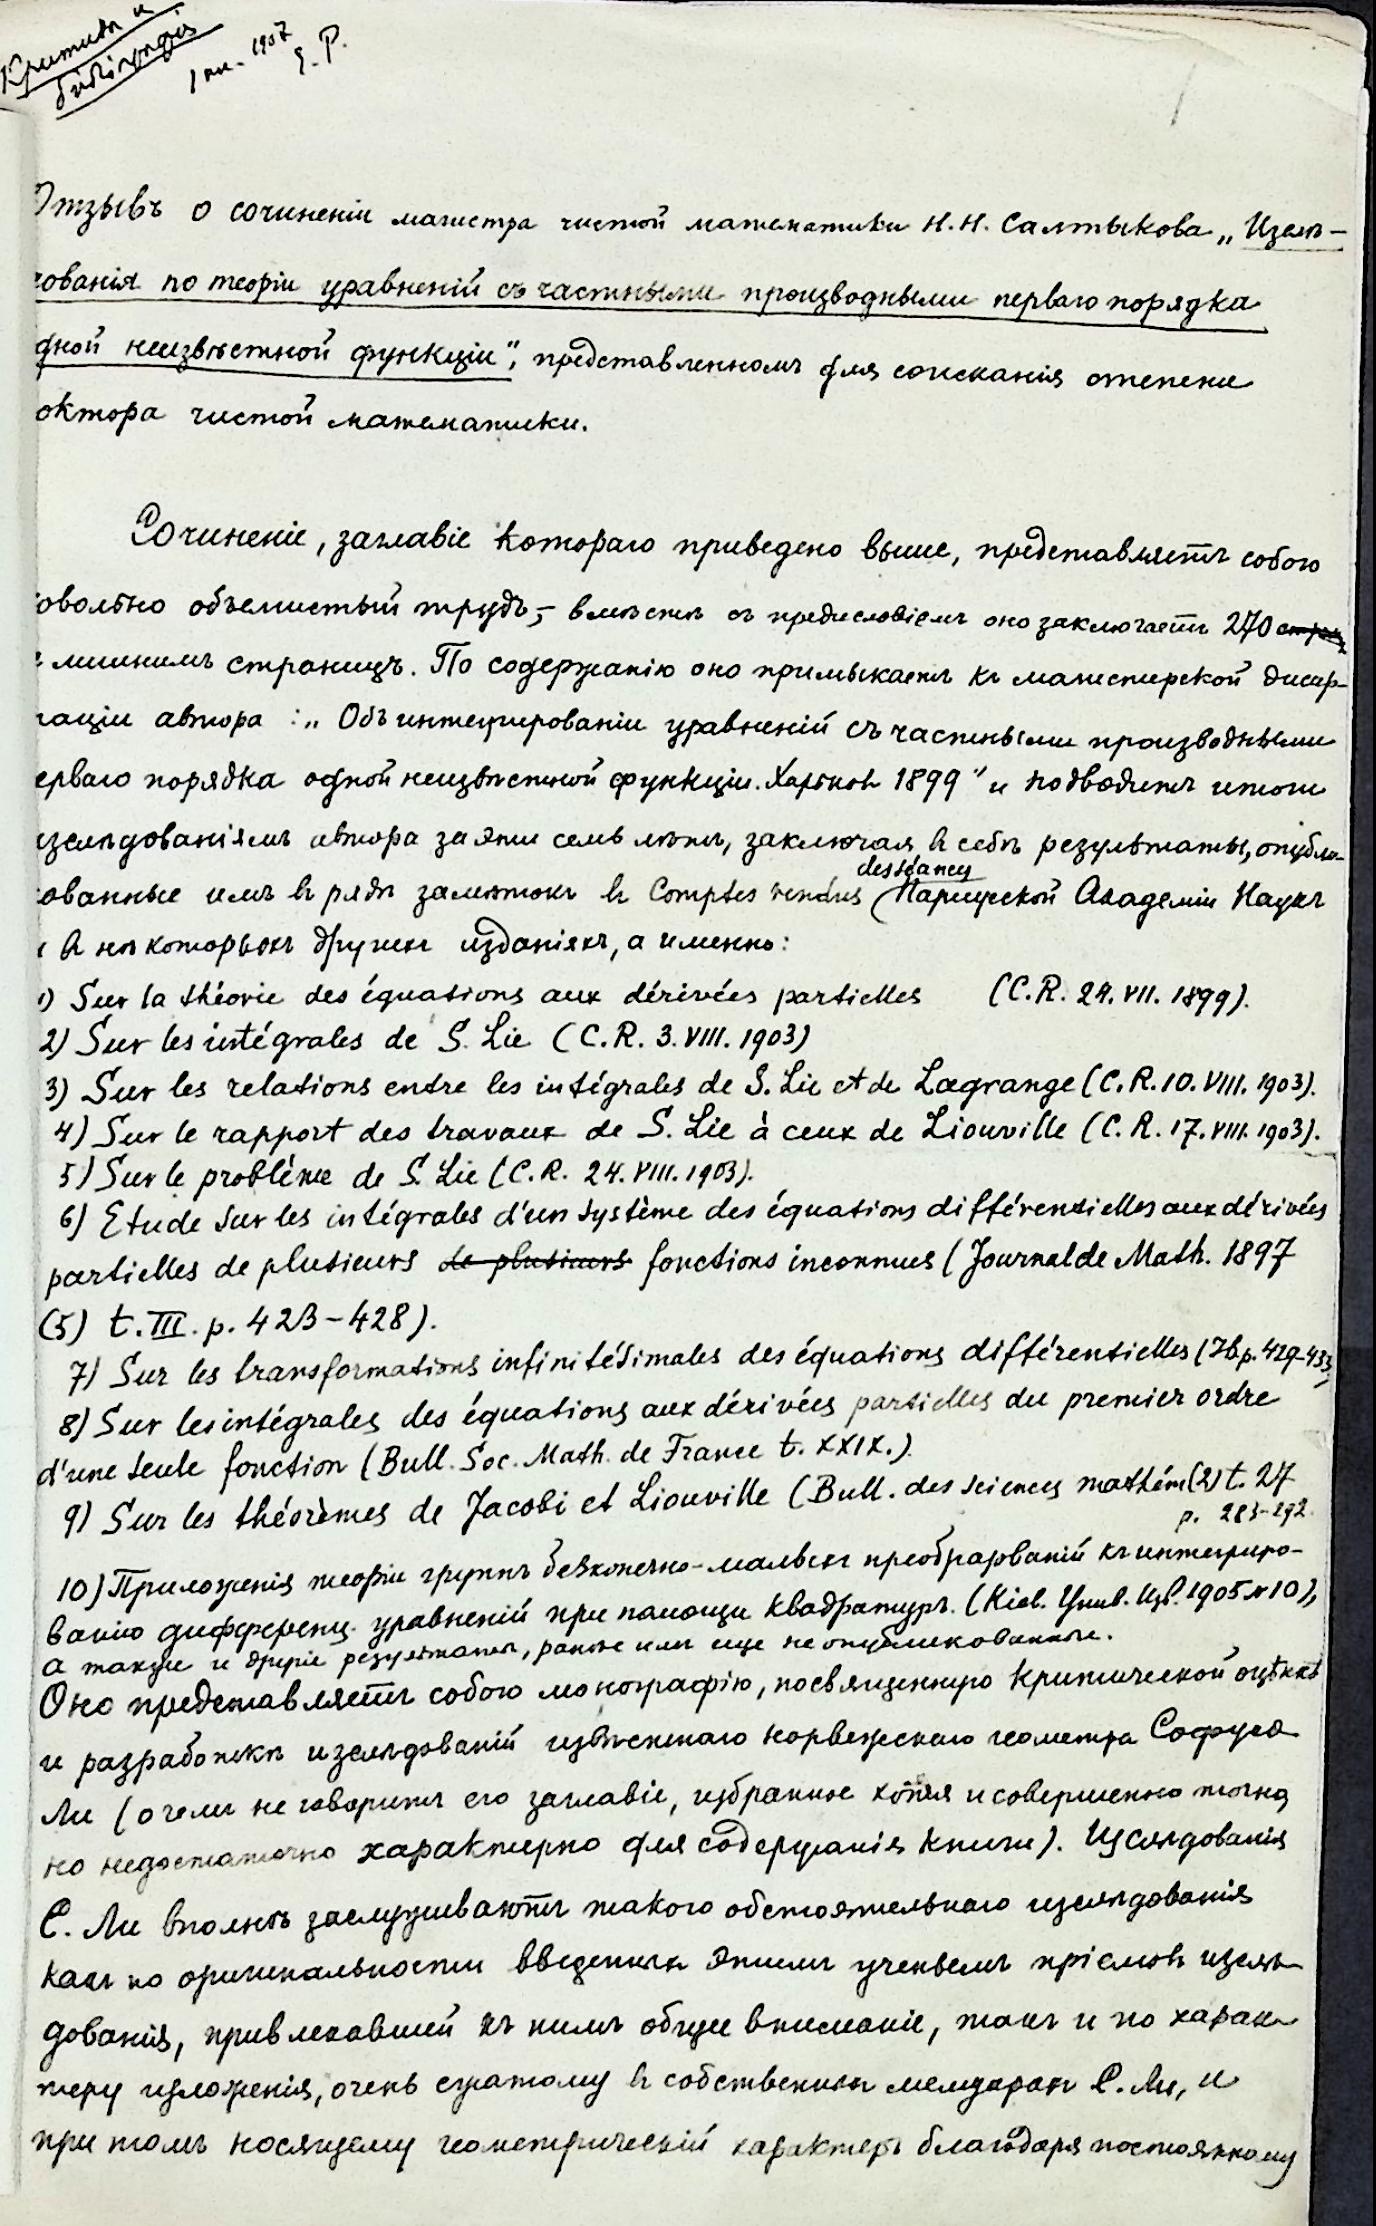 Критика и
библіографія
1907
Отзывъ о сочиненіи магистра чистой математики Н. Н. Салтыкова „Изслѣ-
дованія по теоріи уравненій съ частными производными перваго порядка
одной неизвѣстной функціи“, представленномъ для соисканія степени
доктора чистой математики.
Сочиненіе, заглавіе котораго приведено выше, представляетъ собою
довольно объемистый трудъ, – вмѣстѣ съ предисловіемъ оно заключаетъ 270
съ лишнимъ страницъ. По содержанію оно примыкаетъ къ магистерской дисер-
таціи автора: „Объ интегрированіи уравненій съ частными производными
перваго порядка одной неизвѣстной функціи. Харьковъ 1899“ и подводитъ итоги
изслѣдованіямъ автора за эти семь лѣтъ, заключая въ себѣ результаты, опубли-
кованные имъ въ рядѣ замѣтокъ въ Comptes rendus des séances (Парижской Академіи Наукъ
и въ нѣкоторыхъ другихъ изданіяхъ, а именно:
1) Sur la théorie des équations aux dérivées partielles (C.R. 24. VII. 1899).
2) Sur les intégrales de S. Lie (C.R. 3. VIII. 1903)
3) Sur les relations entre les intégrales de S. Lie et de Lagrange (C.R. 10. VIII. 1903).
4) Sur le rapport des travaux de S. Lie à ceux de Liouville (C.R. 17. VIII. 1903).
5) Sur le problème de S. Lie (C.R. 24. VIII. 1903).
6) Etude sur les intégrales d'un système des équations différentielles aux dérivées
partielles de plusieurs de plusieurs fonctions inconnues (Journal de Math. 1897
(5) t. III. p. 423–428).
7) Sur les transformations infinitésimales des équations différentielles (Ib. p. 429–433)
8) Sur les intégrales des équations aux dérivées partielles du premier ordre
d'une seule fonction (Bull. Soc. Math. de France t. XXIX.).
9) Sur les théorèmes de Jacobi et Liouville (Bull. des sciences mathém (2) t. 27
p. 283–292
10) Приложенія теоріи группъ безконечно-малыхъ преобразованій къ интегриро-
ванію дифференц. уравненій при помощи квадратуръ. (Кіев. Унив. Изв. 1905 № 10),
а также и другіе результаты, ранѣе имъ еще не опубликованные.
Оно представляетъ собою монографію, посвященную критической оцѣнкѣ
и разработкѣ изслѣдованій извѣстнаго норвежскаго геометра Софуса
Ли (о чемъ не говоритъ его заглавіе, избранное хотя и совершенно точно,
но недостаточно характерно для содержанія книги). Изслѣдованія
С. Ли вполнѣ заслуживаютъ такого обстоятельнаго изслѣдованія
какъ по оригинальности введенныхъ этимъ ученымъ пріемовъ изслѣ-
дованія, привлекавшей къ нимъ общее вниманіе, такъ и по харак-
теру изложенія, очень сжатому въ собственныхъ мемуарахъ С. Ли, и
при томъ носящему геометрическій характеръ благодаря постоянному